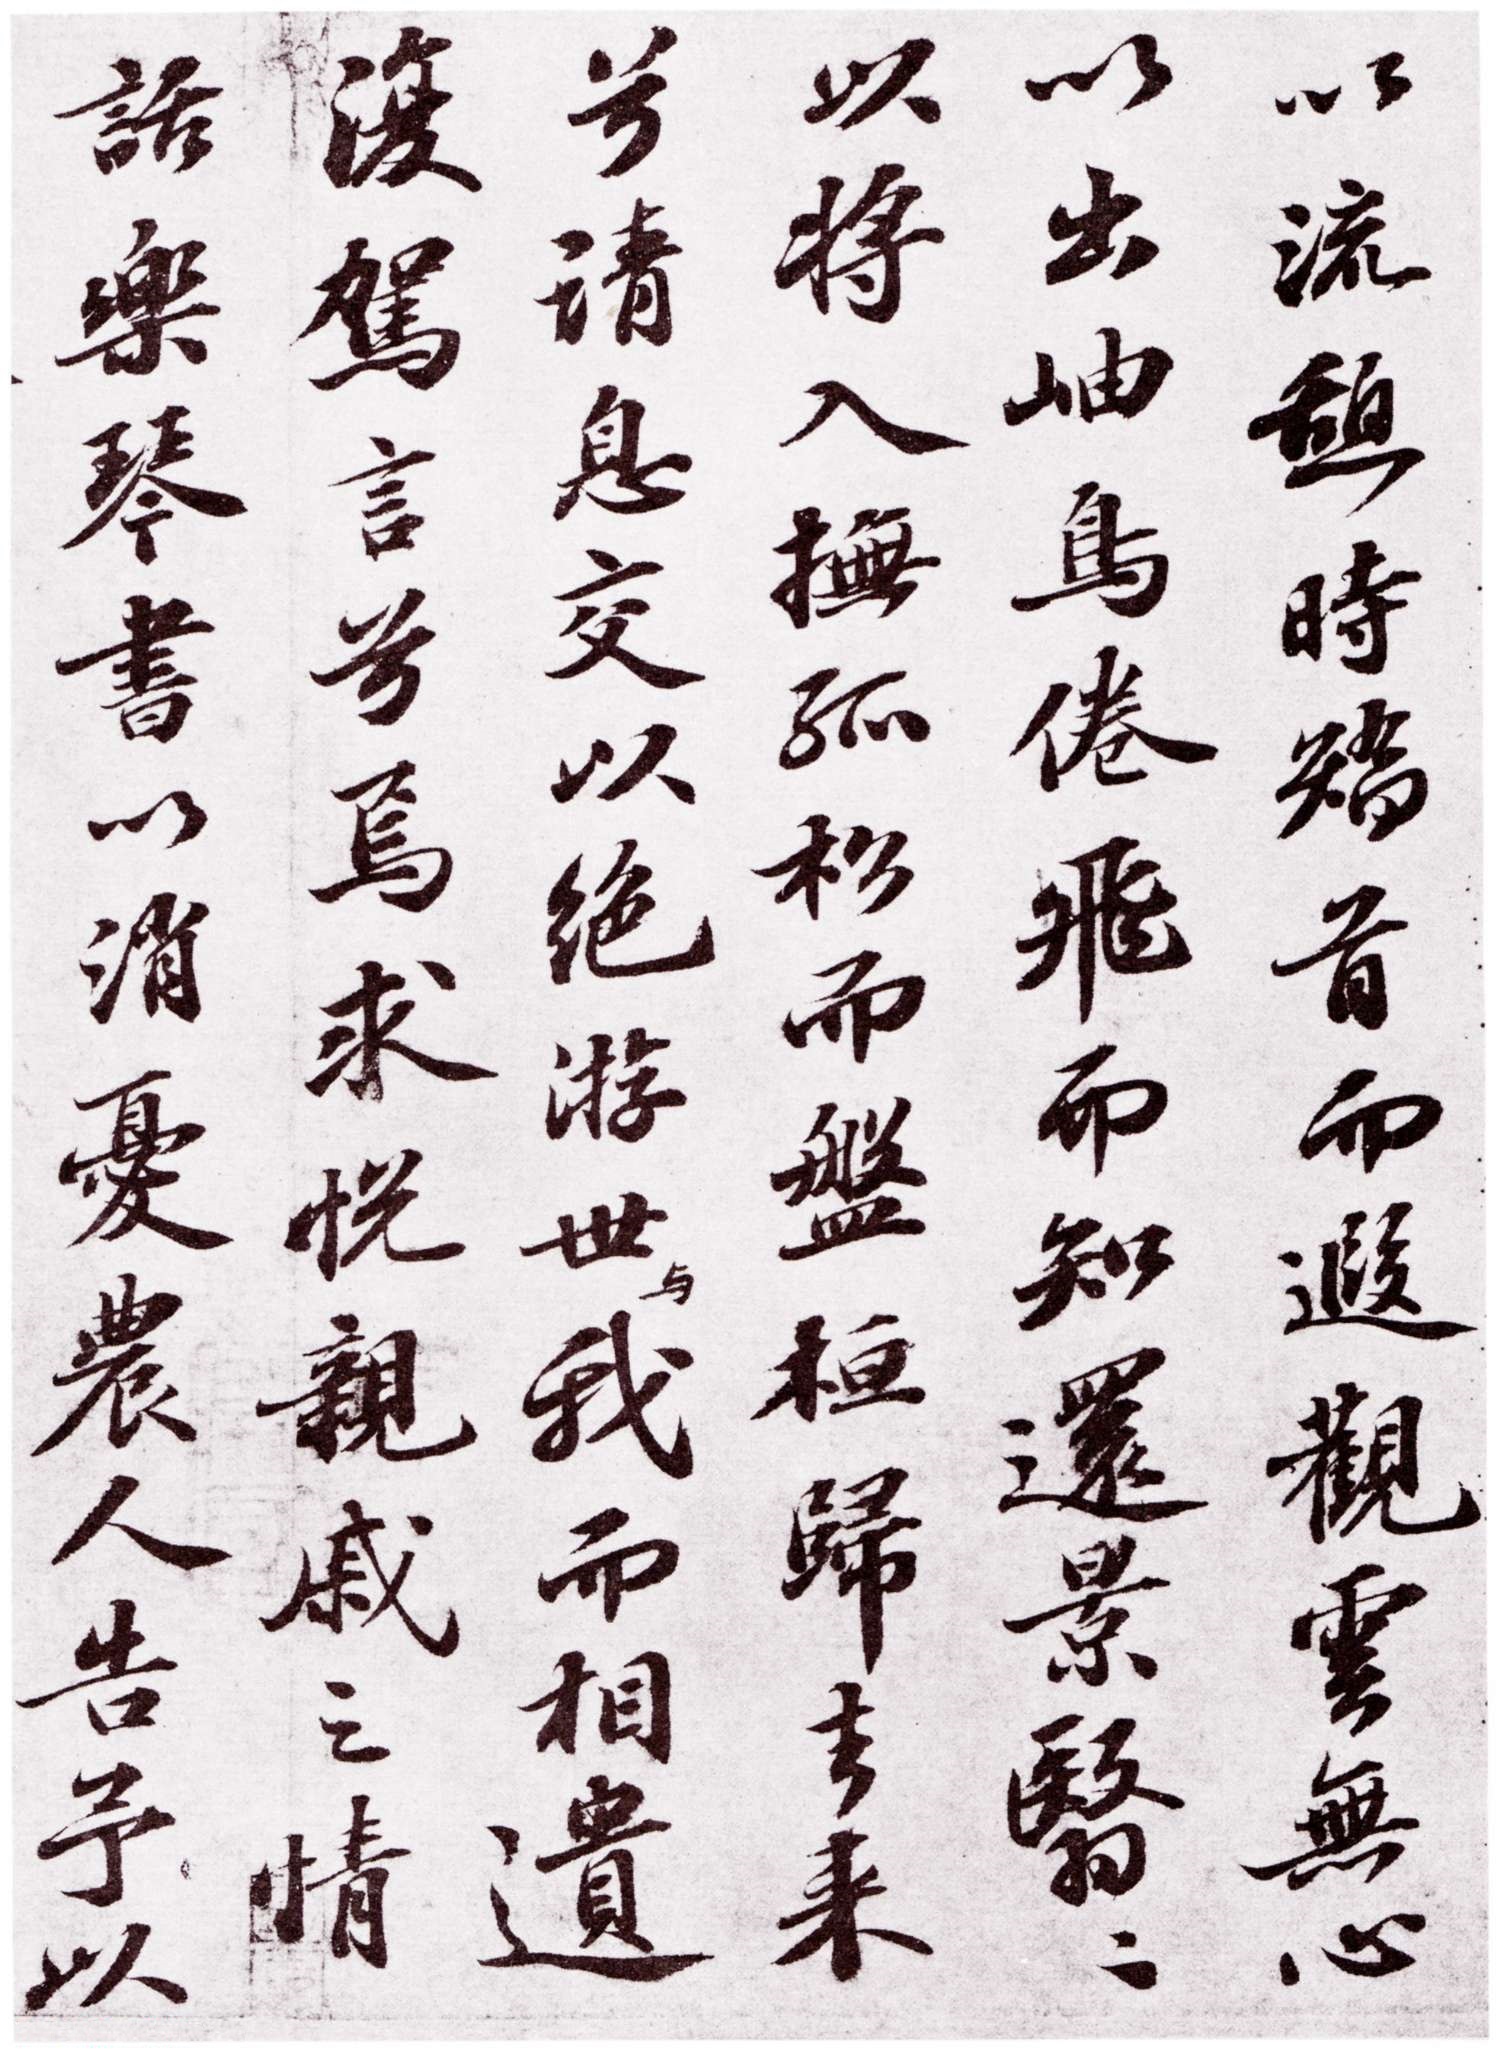 以流憩時矯首而遐觀雲無心
以出岫鳥倦飛而知還景翳二
以將入撫孤松而盤桓歸去来
兮請息交以絶游世与我而相遺
復駕言兮焉求悦親戚之情
話樂琴書以消憂農人告予以